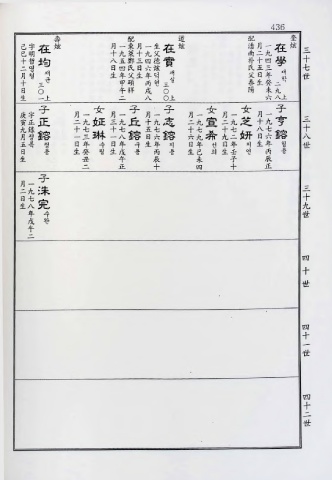 436
三十七世
奎炫
在學 재학 二九八 上
一九四三年癸未六
月二十五日生
配潘南朴氏父春陽
道炫
在實 재실 三〇〇 上
生父德炫덕현
一九四六年丙戌八
月十三日生
配東萊鄭氏父碩祥
一九五四年甲午二
月十八日生
壽炫
在均 재균 三〇一 上
字明哲명철
己巳十二月十日生
三十八世
子亨鎔 형용
一九七六年丙辰正
月二十五日生
女芝妍 지연
一九七二年壬子十
月二十九日生
女宣希 선희
一九七九年己未四
月二十六日生
子志鎔 지용
一九七六年丙辰十
月十五日生
子丘鎔 구용
一九七八年戊午正
月三十一日生
女姃琳 정림
一九七三年癸丑二
月二十二日生
子正鎔 정용
字正錫정석
庚寅九月五日生
三十九世
子洙完 수완
一九七八年戊午二
月二日生
四十世
四十一世
四十二世